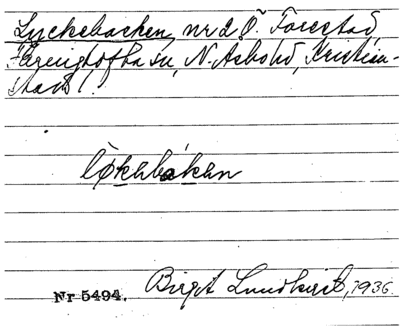 Lyckebacken, nr 2 Ö. Forestad,
Färingtofta sn, N. Åsbo hd, Kristian-
stads l.
løkəbakən
Nr 5494.
Birgit Lundkvist, 1936.